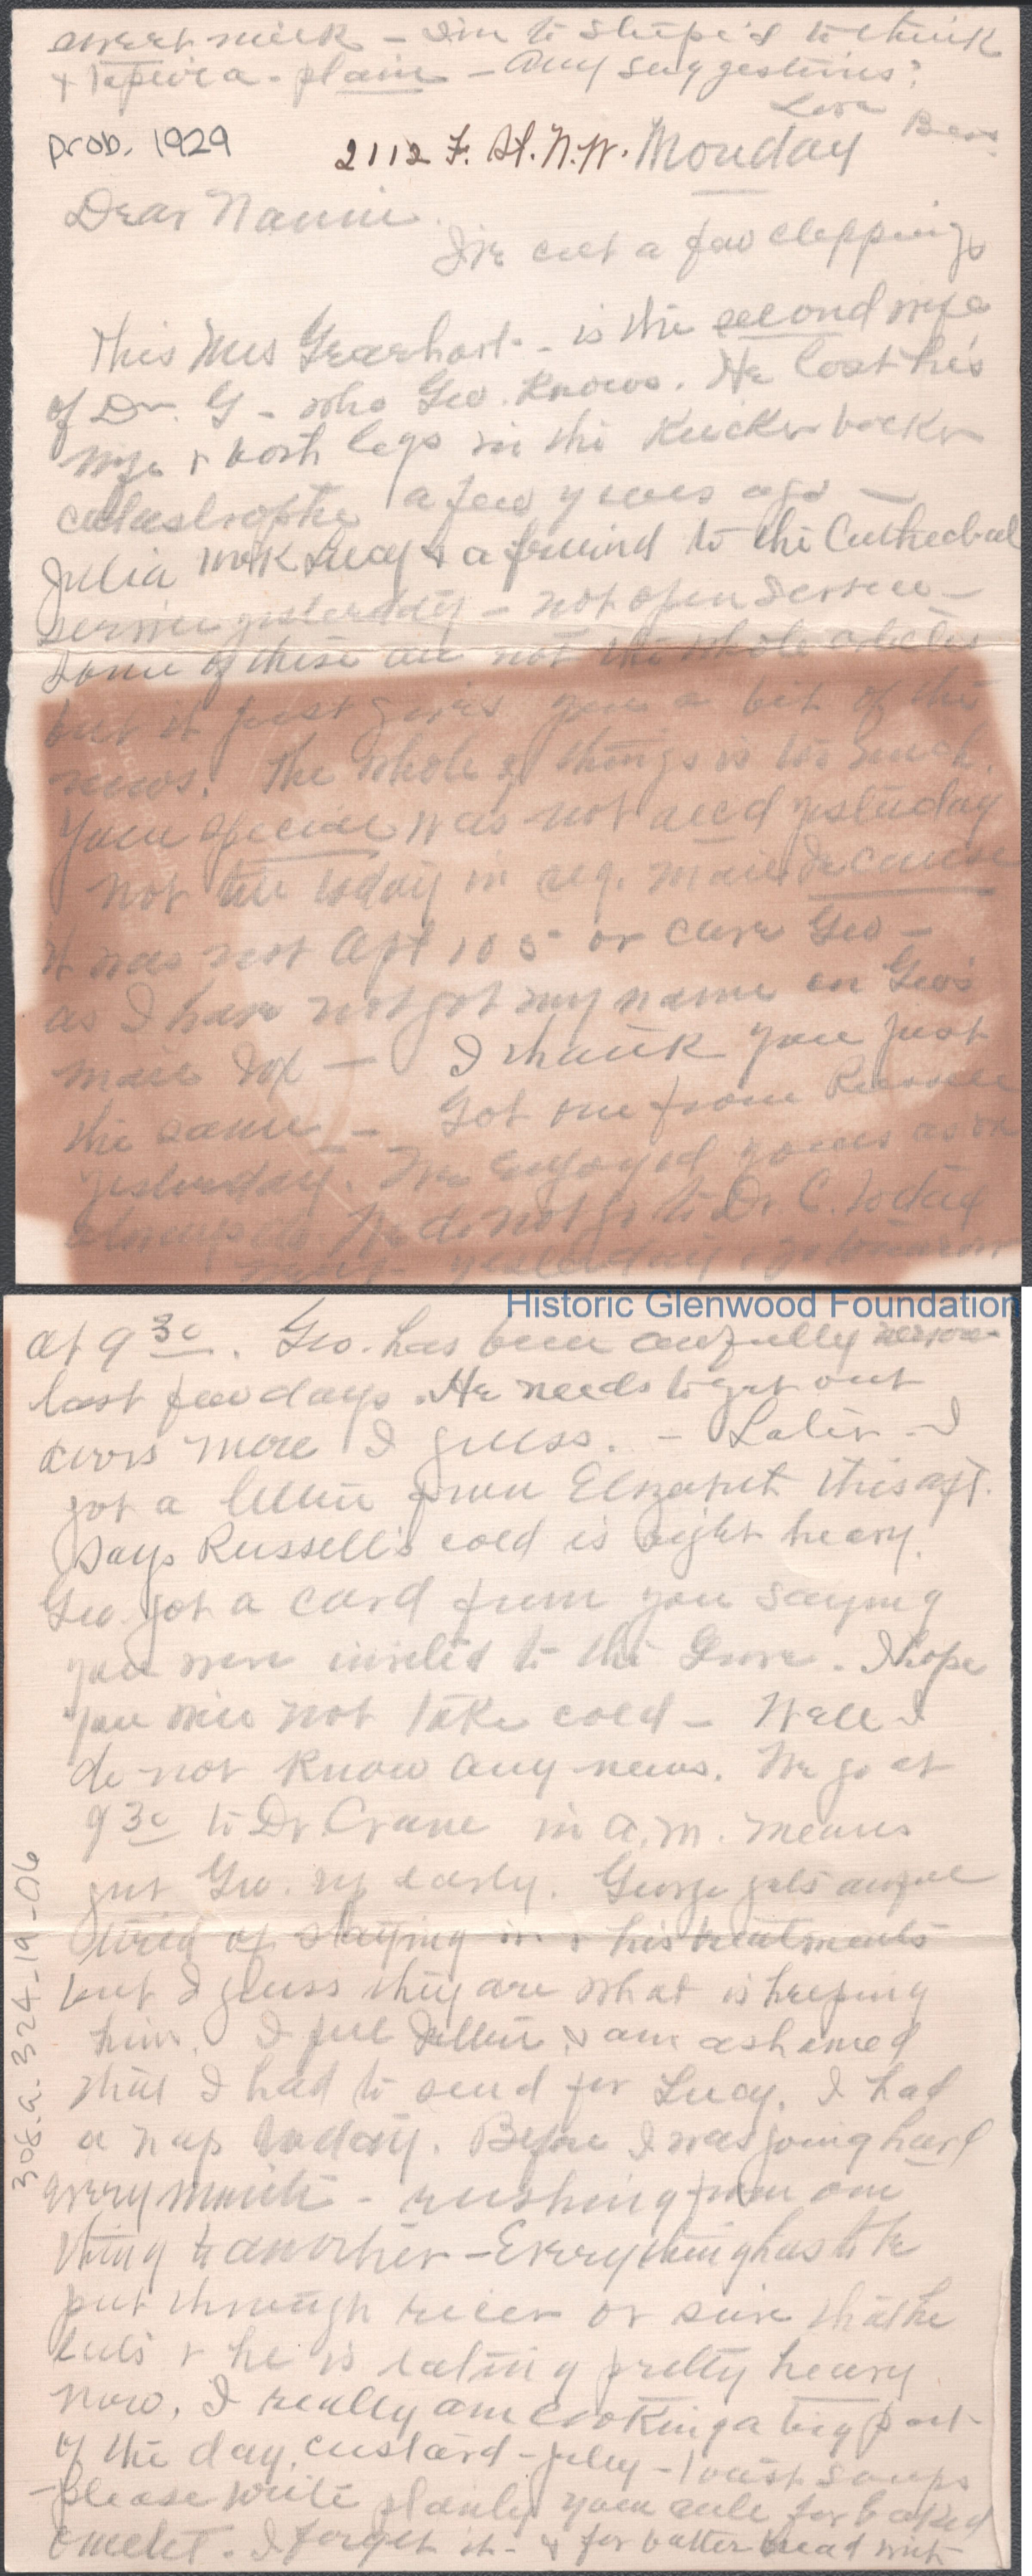 sweet milk - I'm to stupid to think
& tapioca - plain - Any suggestions?
Love Bess
prob. 1929
2112 F. St. N.W. Monday
Dear Nannie.
I've cut a few clippings
This Mrs Gearhart - is the second wife
of Dr. G - who Geo. knows. He lost his
wife & both legs in the Knickerbocker
catastrophe a few years ago -
Julia took Lucy & a friend to the Cathedral
service yesterday - not open service -
Some of these are not the whole articles
but it just gives you a bit of the
news. The whole of things is too much.
Your special was not recd yesterday
not till today in reg. mail because
it was not Apt 105 or care Geo -
as I have not got my name on Geo's
mail box - I thank you just
the same - Got one from Russell
yesterday. We enjoyed yours as we
always do. We do not go to Dr. C. today
yesterday & go tomorrow
Historic Glenwood Foundation
at 9 30. Geo. has been awfully nervous
last few days. He needs to get out
doors more I guess. - Later - I
got a letter from Elizabeth this aft.
Says Russell's cold is right heavy.
Geo. got a card from you saying
you were invited to the Grove - I hope
you will not take cold - Well I
do not know any news. We go at
9 30 to Dr Crane in a.m. means
get Geo. up early. George gets awful
tired of staying in & his treatments
but I guess they are what is keeping
him. I feel better & am ashamed
that I had to send for Lucy. I had
a nap today. Before I was going hard
every minute - rushing from one
thing to another - Everything has to be
put through ricer or sieve that he
eats & he is eating pretty heavy
now. I really am cooking a big part
of the day. custard - jelly - toast soups
- Please write plainly your rule for baked
omelet. I forget it - & for batter bread with
306.a.324-19-06